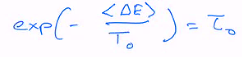 exp(- <ΔE>/T₀) = τ₀